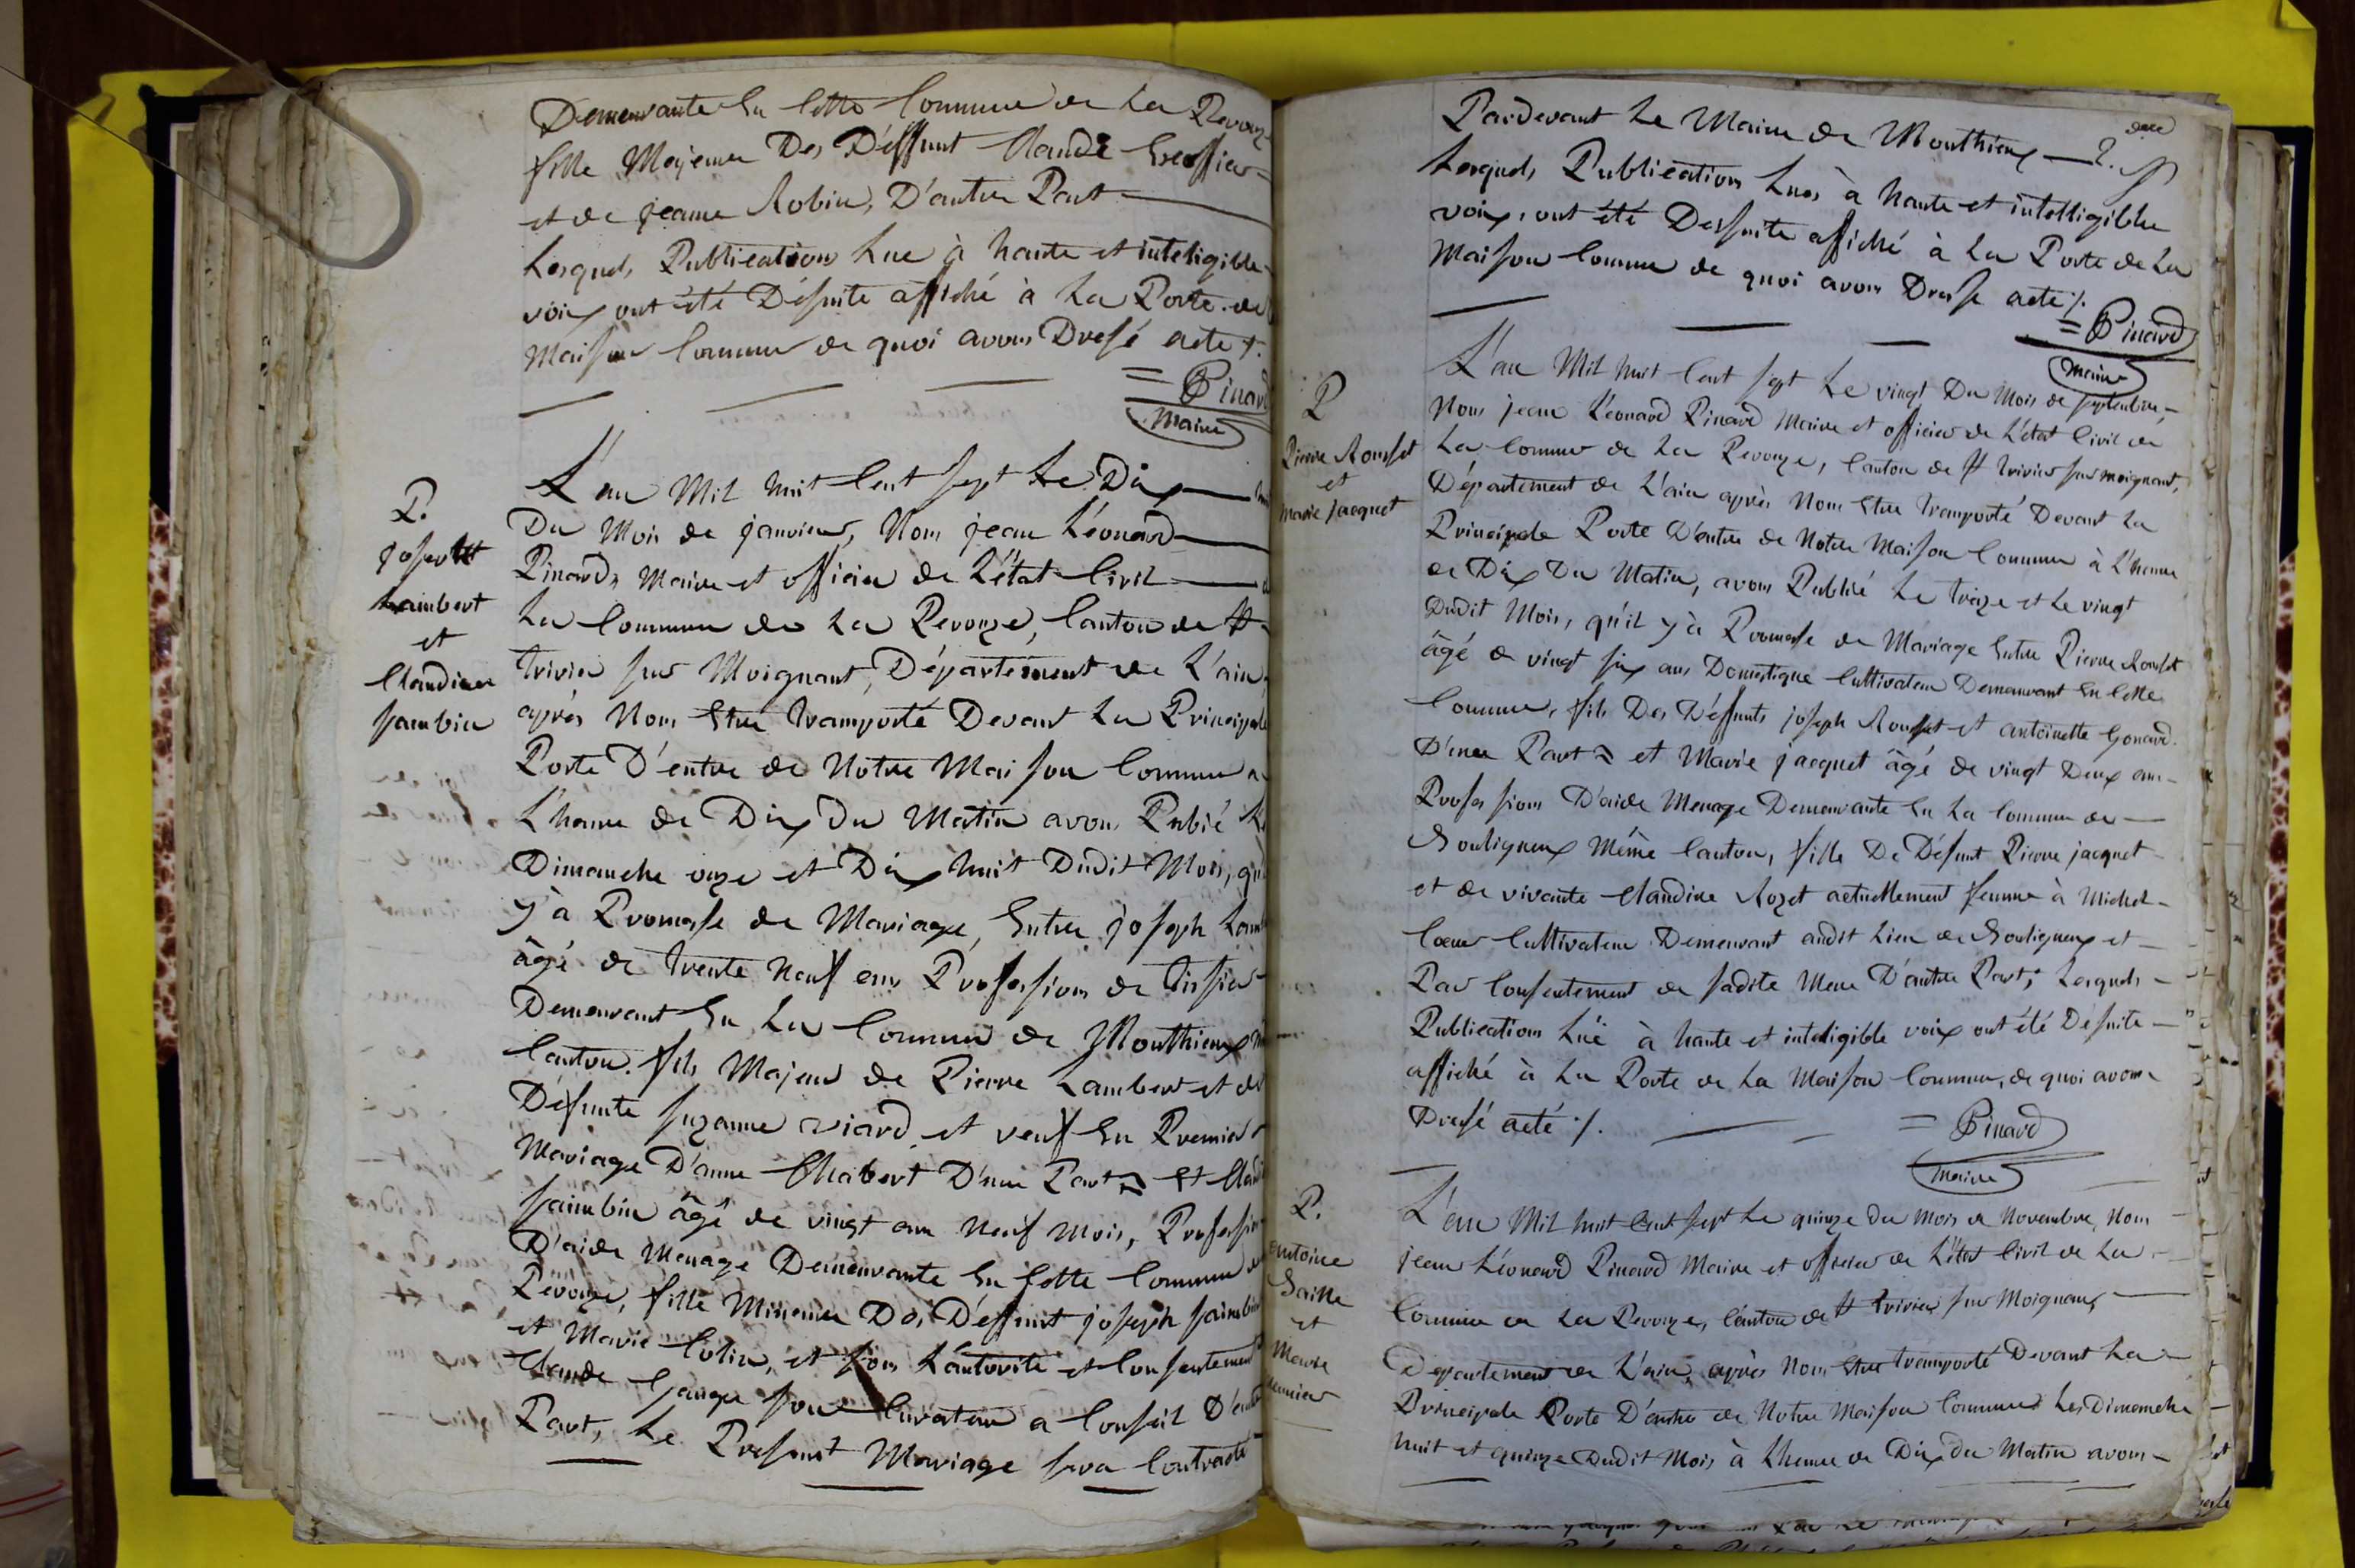 Demeurante En Cette Commune de La Peyouze
fille Majeure Des Déffunt Claude
et de jeanne Robin, D'autre Part
Lesquels Publication Lue à haute et inteligible
voix ont été Désuite affiché à La Porte de
Maison Commune de quoi avons Dressé acte
= Pinard
Maire
P.
joseph
Lambert
et
Claudine
Jambin
L'an Mil huit Cent sept Le Dix
Du Mois de janvier, Nous jean Léonard
Pinard, Maire et officier de L'état Civil
La Commune de La Peyouze, Canton de St
trivier sur Moignant, Département de L'ain,
après Nous Etre transporté Devant La Principale
Porte D'entre de Notre Maison Commune a
L'heure de Dix Du Matin avons Publié
Dimanche onze et Dix huit Dudit Mois, qu
y à Promesse de Mariage, Entre joseph Lam
âgé de trente Neuf ans Profession de tissier
Demeurant En La Commune de Monthieux
Canton. fils Majeur de Pierre Lambert et de
Défunte Suzanne viard et veuf En Premier
Mariage D'anne Chabert D'une Part Et Claud
Jambin âgé de vingt ans Neuf Mois, Profession
D'aide Menage Demeurante En Cette Commune
Peyouze, fille Mineure Des Déffunt joseph Jambin
et Marie Colin, et sous L'autorité et Consentement
Claude Gange son Curateur a Conseil D'autre
Part, Le Present Mariage sera Contracté
Pardevant Le Maire de Monthieux
Lesquels Publication Lues à haute et intelligible
voix, ont été Dessuite affiché à La Porte de La
Maison Commune de quoi avons Dressé acte ./.
= Pinard
Maire
P
Pierre Rousset
et
Marie Jacquet
L'an Mil huit Cent sept Le vingt Du Mois de septembre,
Nous jean Léonard Pinard Maire et officier de L'état Civil de
La Commune de La Peyouze, Canton de St trivier sur moignant,
Département de L'ain après Nous Etre transporté Devant La
Principale Porte D'entre de Notre Maison Commune à L'heure
de Dix Du Matin, avons Publié Le treize et Le vingt
Dudit Mois, qu'il y à Promesse de Mariage Entre Pierre Rousset
âgé de vingt six ans Domestique Cultivateur Demeurant En Cette
Commune, fils Des Déffunts joseph Rousset et antoinette Gonard.
D'une Part et Marie jacquet âgé de vingt Deux ans
Profession D'aide Menage Demeurante En La Commune de
Bouligneux Même Canton, fille De Défunt Pierre jacquet
et de vivante Claudine Rozet actuellement femme à Michel
Coeur Cultivateur Demeurant audit Lieu de Bouligneux et
Par Consentement de sadite Mere D'autre Part, Lesquels
Publication Lué à haute et inteligible voix ont été Desuite
affiché à La Porte de La Maison Commune, de quoi avons
Dressé acté ./.
= Pinard
Maire
P.
antoine
et
Marie
L'an Mil huit Cent sept Le quinze du Mois de Novembre, Nous
jean Léonard Pinard Maire et officier de L'état Civil de La
Commune de La Peyouze, Canton de St trivier sur Moignans,
Département de L'ain, après Nous Etre transporté Devant La
Principale Porte D'entre de Notre Maison Commune Les Dimanche
huit et quinze Dudit Mois à L'heure de Dix du Matin avons